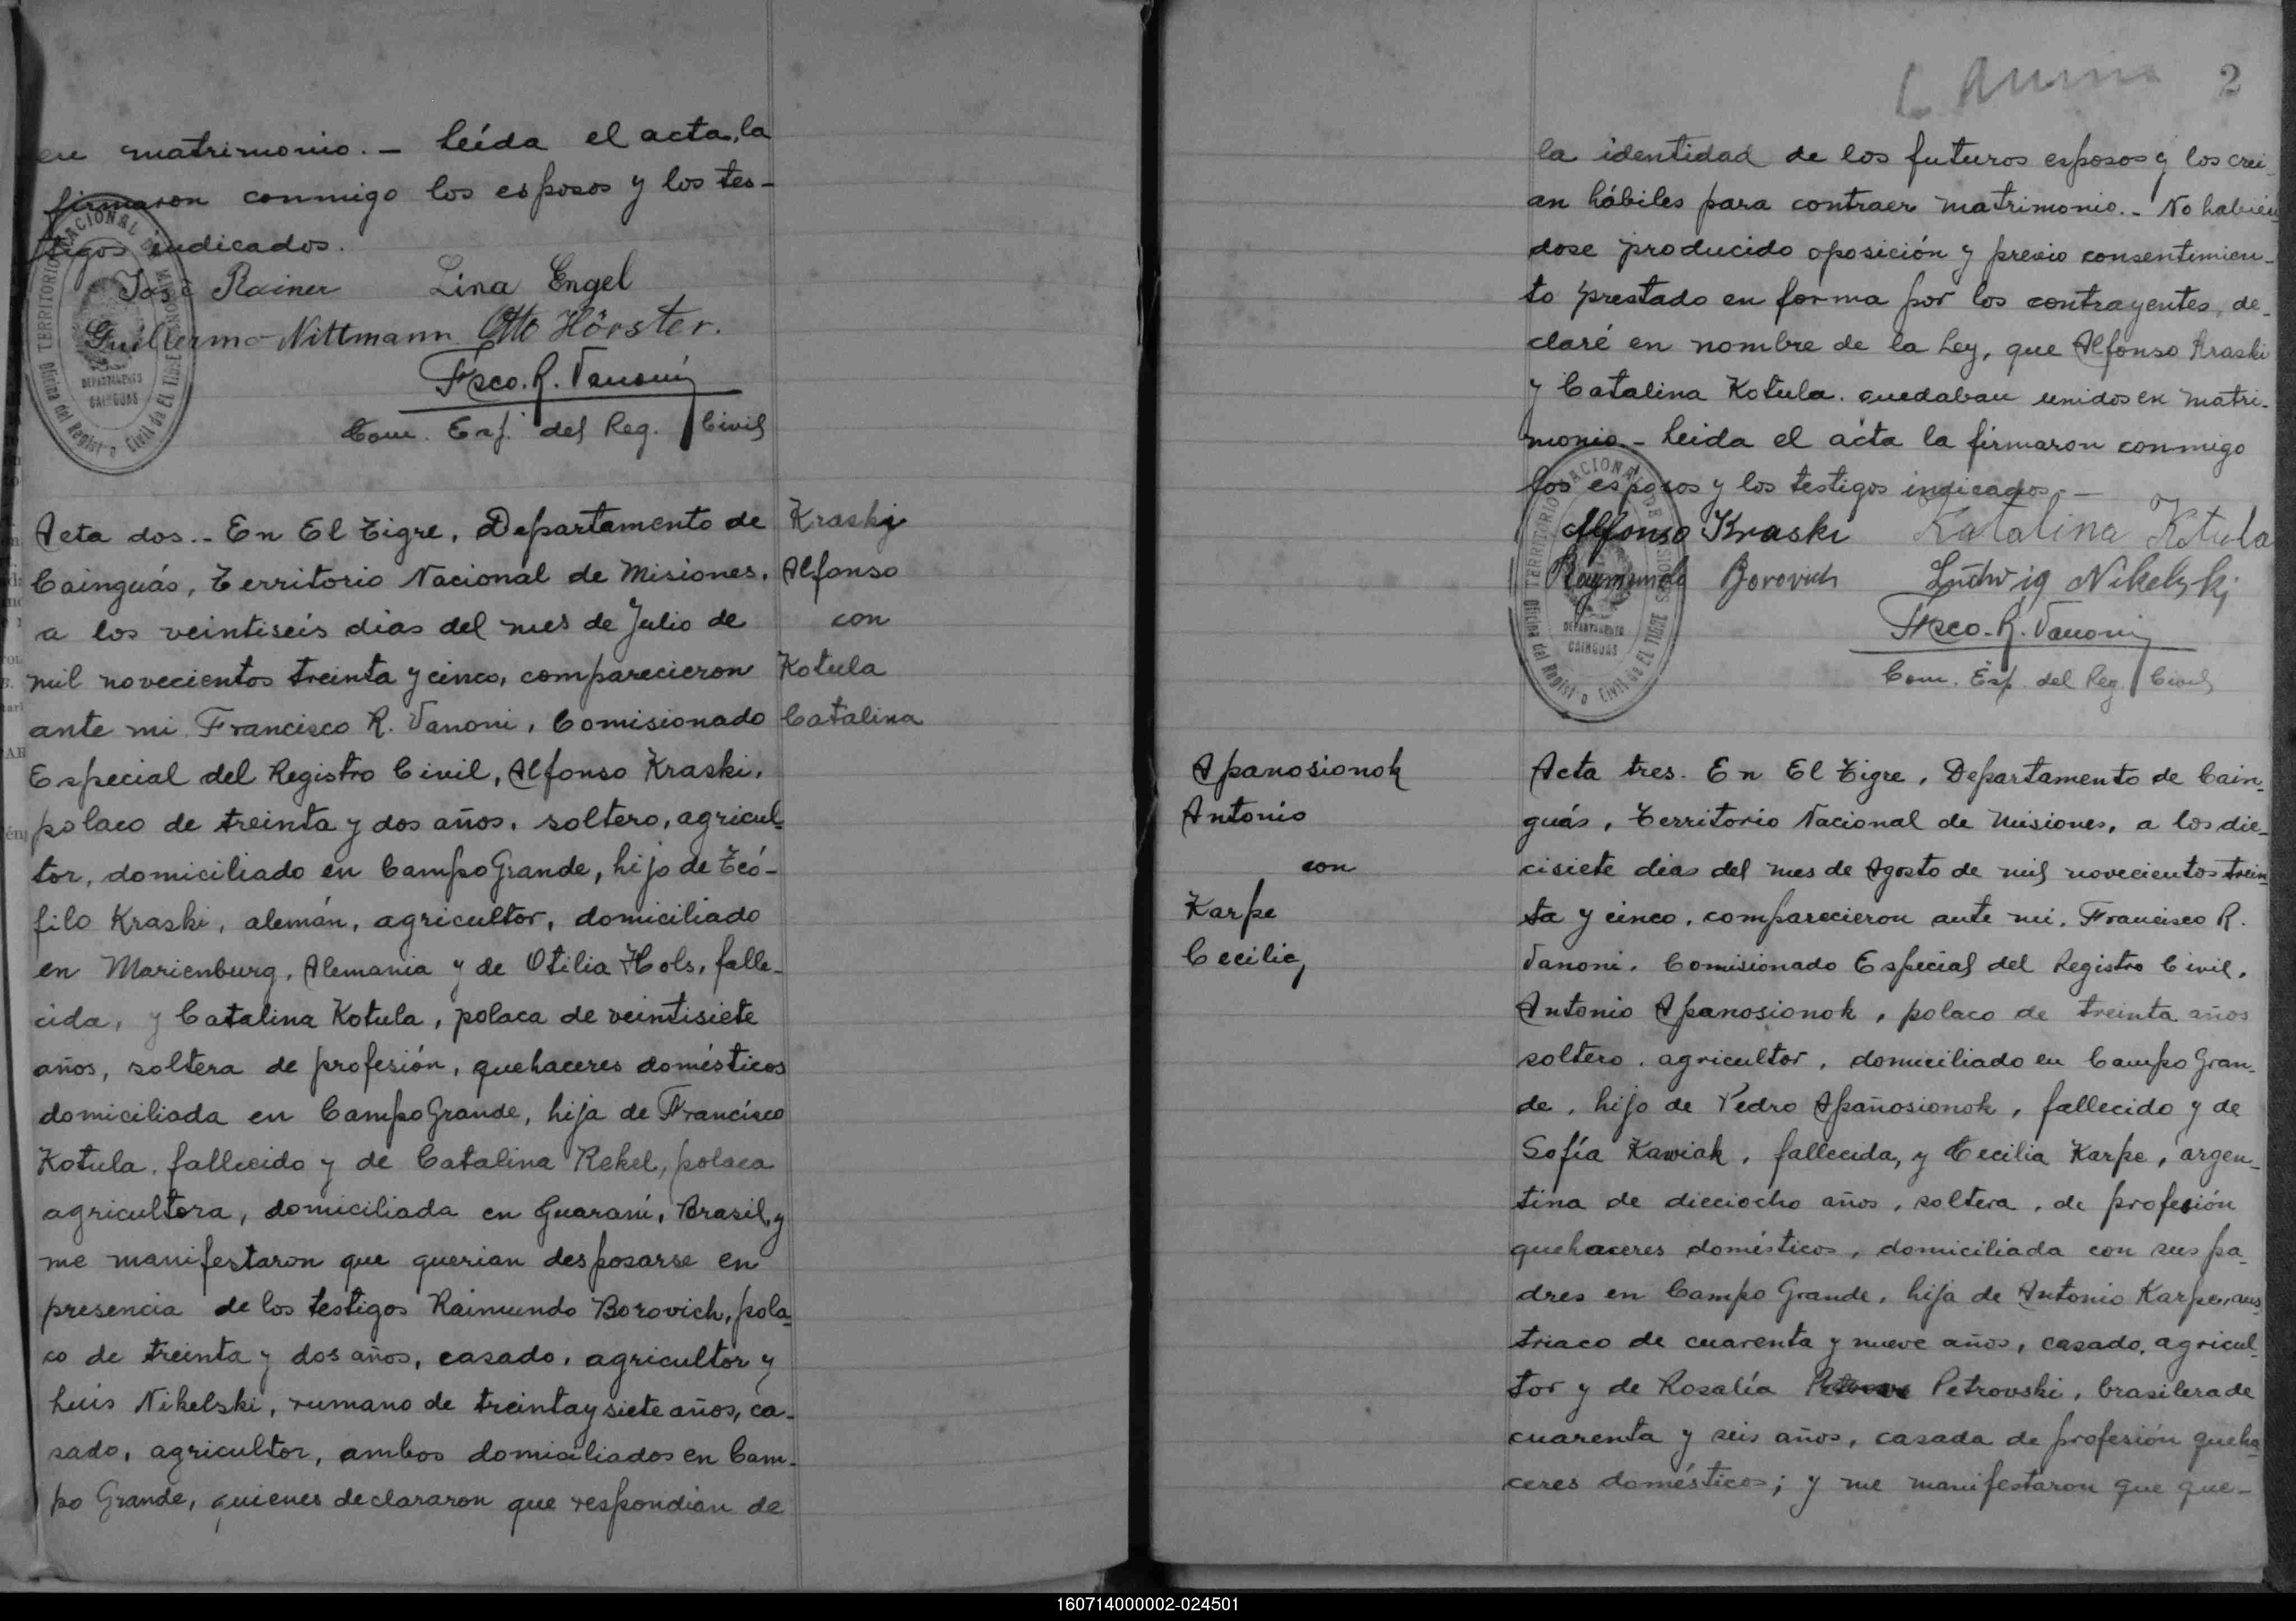 en matrimonio. - Leída el acta, la
firmaron conmigo los esposos y los tes-
tigos indicados.
José Rainer Lina Engel
Guillermo Nittmann Otto Hörster.
Fsco. R. Vanoni
Com. Esp. del Reg. Civil
TERRITORIO NACIONAL DE MISIONES
DEPARTAMENTO
CAINGUAS
Oficina del Registro Civil de EL TIGRE
Acta dos.- En El Tigre, Departamento de
Cainguás, Territorio Nacional de Misiones,
a los veintiseis dias del mes de Julio de
mil novecientos treinta y cinco, comparecieron
ante mi Francisco R. Vanoni, Comisionado
Especial del Registro Civil, Alfonso Kraski,
polaco de treinta y dos años, soltero, agricul-
tor, domiciliado en Campo Grande, hijo de Teó-
filo Kraski, alemán, agricultor, domiciliado
en Marienburg, Alemania y de Otilia Hols, falle-
cida, y Catalina Kotula, polaca de veintisiete
años, soltera de profesión, quehaceres domésticos
domiciliada en Campo Grande, hija de Francisco
Kotula, fallecido y de Catalina Rekel, polaca
agricultora, domiciliada en Guaraní, Brasil, y
me manifestaron que querian desposarse en
presencia de los testigos Raimundo Borovich, pola-
co de treinta y dos años, casado, agricultor y
Luis Nikelski, rumano de treinta y siete años, ca-
sado, agricultor, ambos domiciliados en Cam-
po Grande, quienes declararon que respondian de
Kraski
Alfonso
con
Kotula
Catalina
2
la identidad de los futuros esposos y los crei-
an hábiles para contraer matrimonio.- No habien-
dose producido oposición y previo consentimien-
to prestado en forma por los contrayentes, de-
claré en nombre de la Ley, que Alfonso Kraski
y Catalina Kotula, quedaban unidos en matri-
monio.- Leida el acta la firmaron conmigo
los esposos y los testigos indicados.-
Alfonso Kraski Katalina Kotula
Raymundo Borovich Ludwig Nikelski
Fsco. R. Vanoni
Com. Esp. del Reg. Civil
TERRITORIO NACIONAL DE MISIONES
DEPARTAMENTO
CAINGUAS
Oficina del Registro Civil de EL TIGRE
Apanosionok
Antonio
con
Karpe
Cecilia
Acta tres. En El Tigre, Departamento de Cain-
guás, Territorio Nacional de Misiones, a los die-
cisiete dias del mes de Agosto de mil novecientos trein-
ta y cinco, comparecieron ante mi, Francisco R.
Vanoni, Comisionado Especial del Registro Civil,
Antonio Apanosionok, polaco de treinta años
soltero, agricultor, domiciliado en Campo Gran-
de, hijo de Pedro Apañosionok, fallecido y de
Sofía Kawiak, fallecida, y Cecilia Karpe, argen-
tina de dieciocho años, soltera, de profesión
quehaceres domésticos, domiciliada con sus pa-
dres en Campo Grande, hija de Antonio Karpe, aus-
triaco de cuarenta y nueve años, casado, agricul-
tor y de Rosalía Petrovski, brasilera de
cuarenta y seis años, casada de profesión queha-
ceres domésticos; y me manifestaron que que-
160714000002-024501